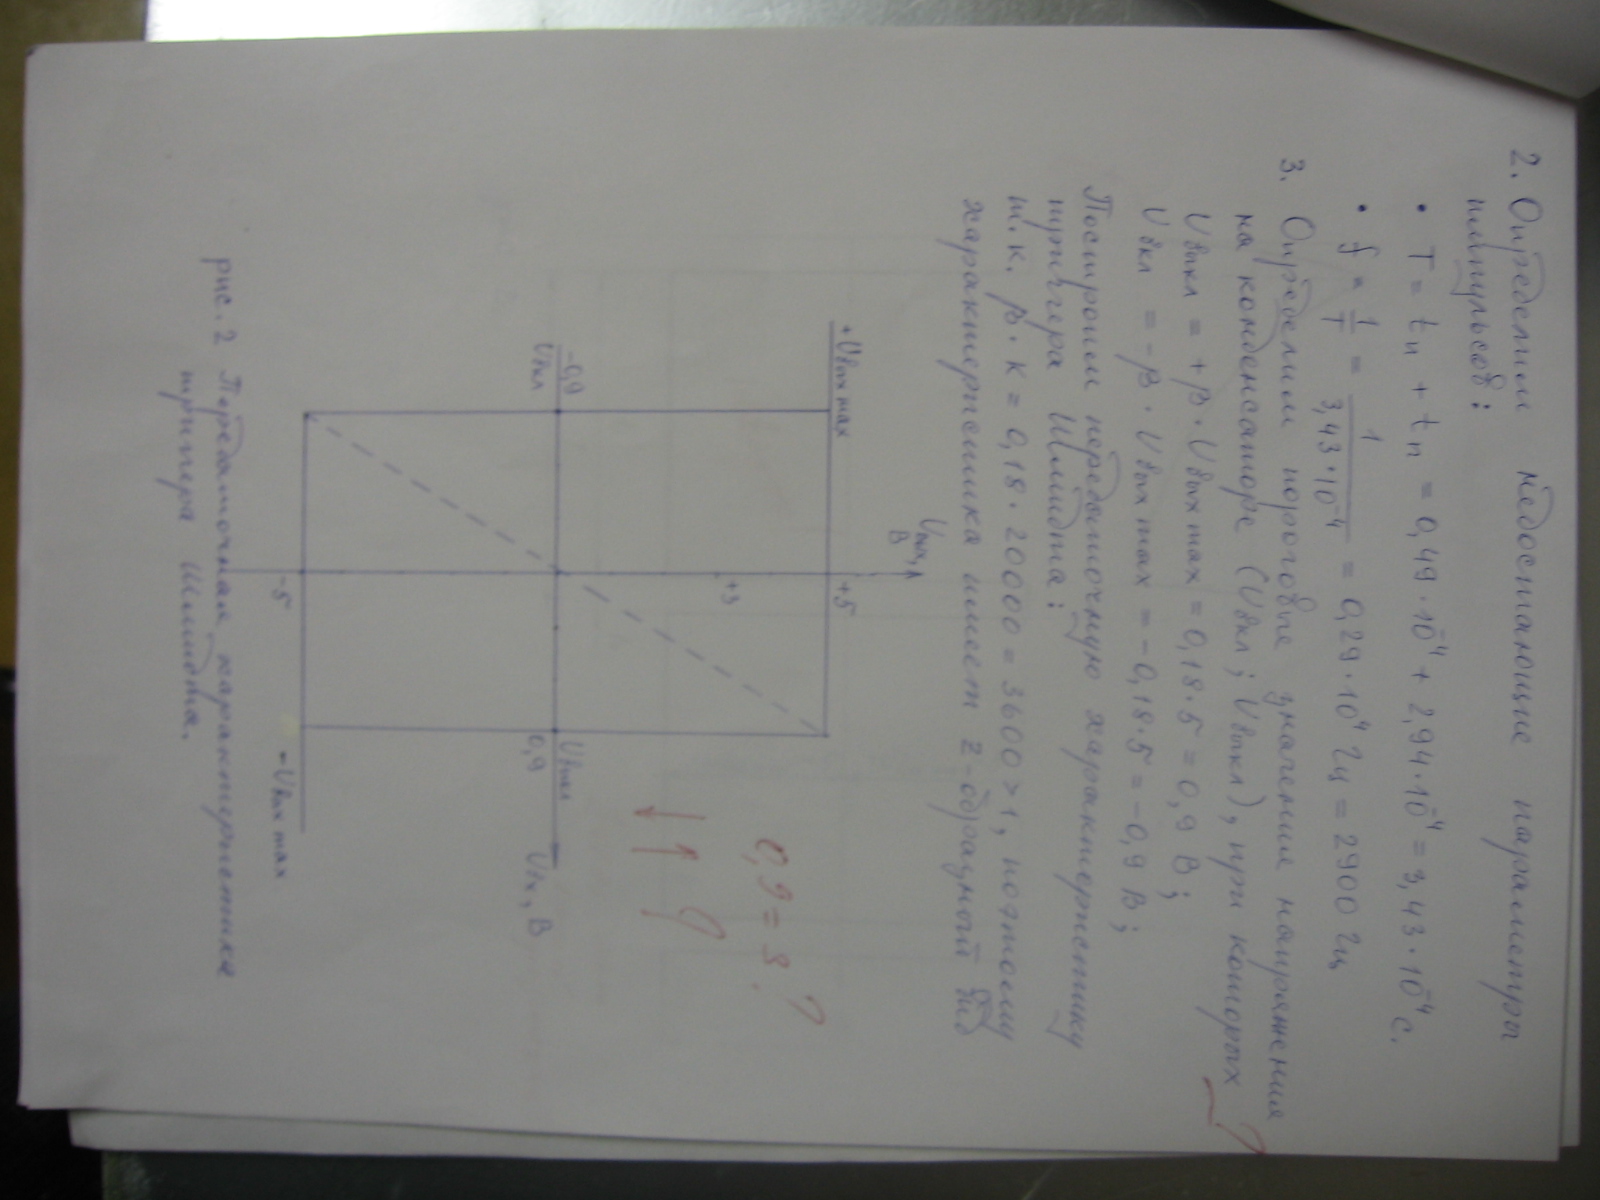 2. Определим недостающие параметры
импульсов:
• T = tи + tп = 0,49·10⁻⁴ + 2,94·10⁻⁴ = 3,43·10⁻⁴ с.
• f = 1/T = 1/3,43·10⁻⁴ = 0,29·10⁴ Гц = 2900 Гц
3. Определим пороговые значения напряжения
на конденсаторе (Uвкл; Uвыкл), при которых
Uвыкл = +β·Uвых max = 0,18·5 = 0,9 В;
Uвкл = -β·Uвых max = -0,18·5 = -0,9 В;
Построим передаточную характеристику
триггера Шмидта:
т.к. β·K = 0,18·20000 = 3600 > 1, поэтому
характеристика имеет z-образный вид
Uвых,
В
+Uвых max
+5
+3
0,9 = 3 ?
-0,9
Uвкл
Uвыкл
0,9
Uвх, В
-5
-Uвых max
рис. 2 Передаточная характеристика
триггера Шмидта.